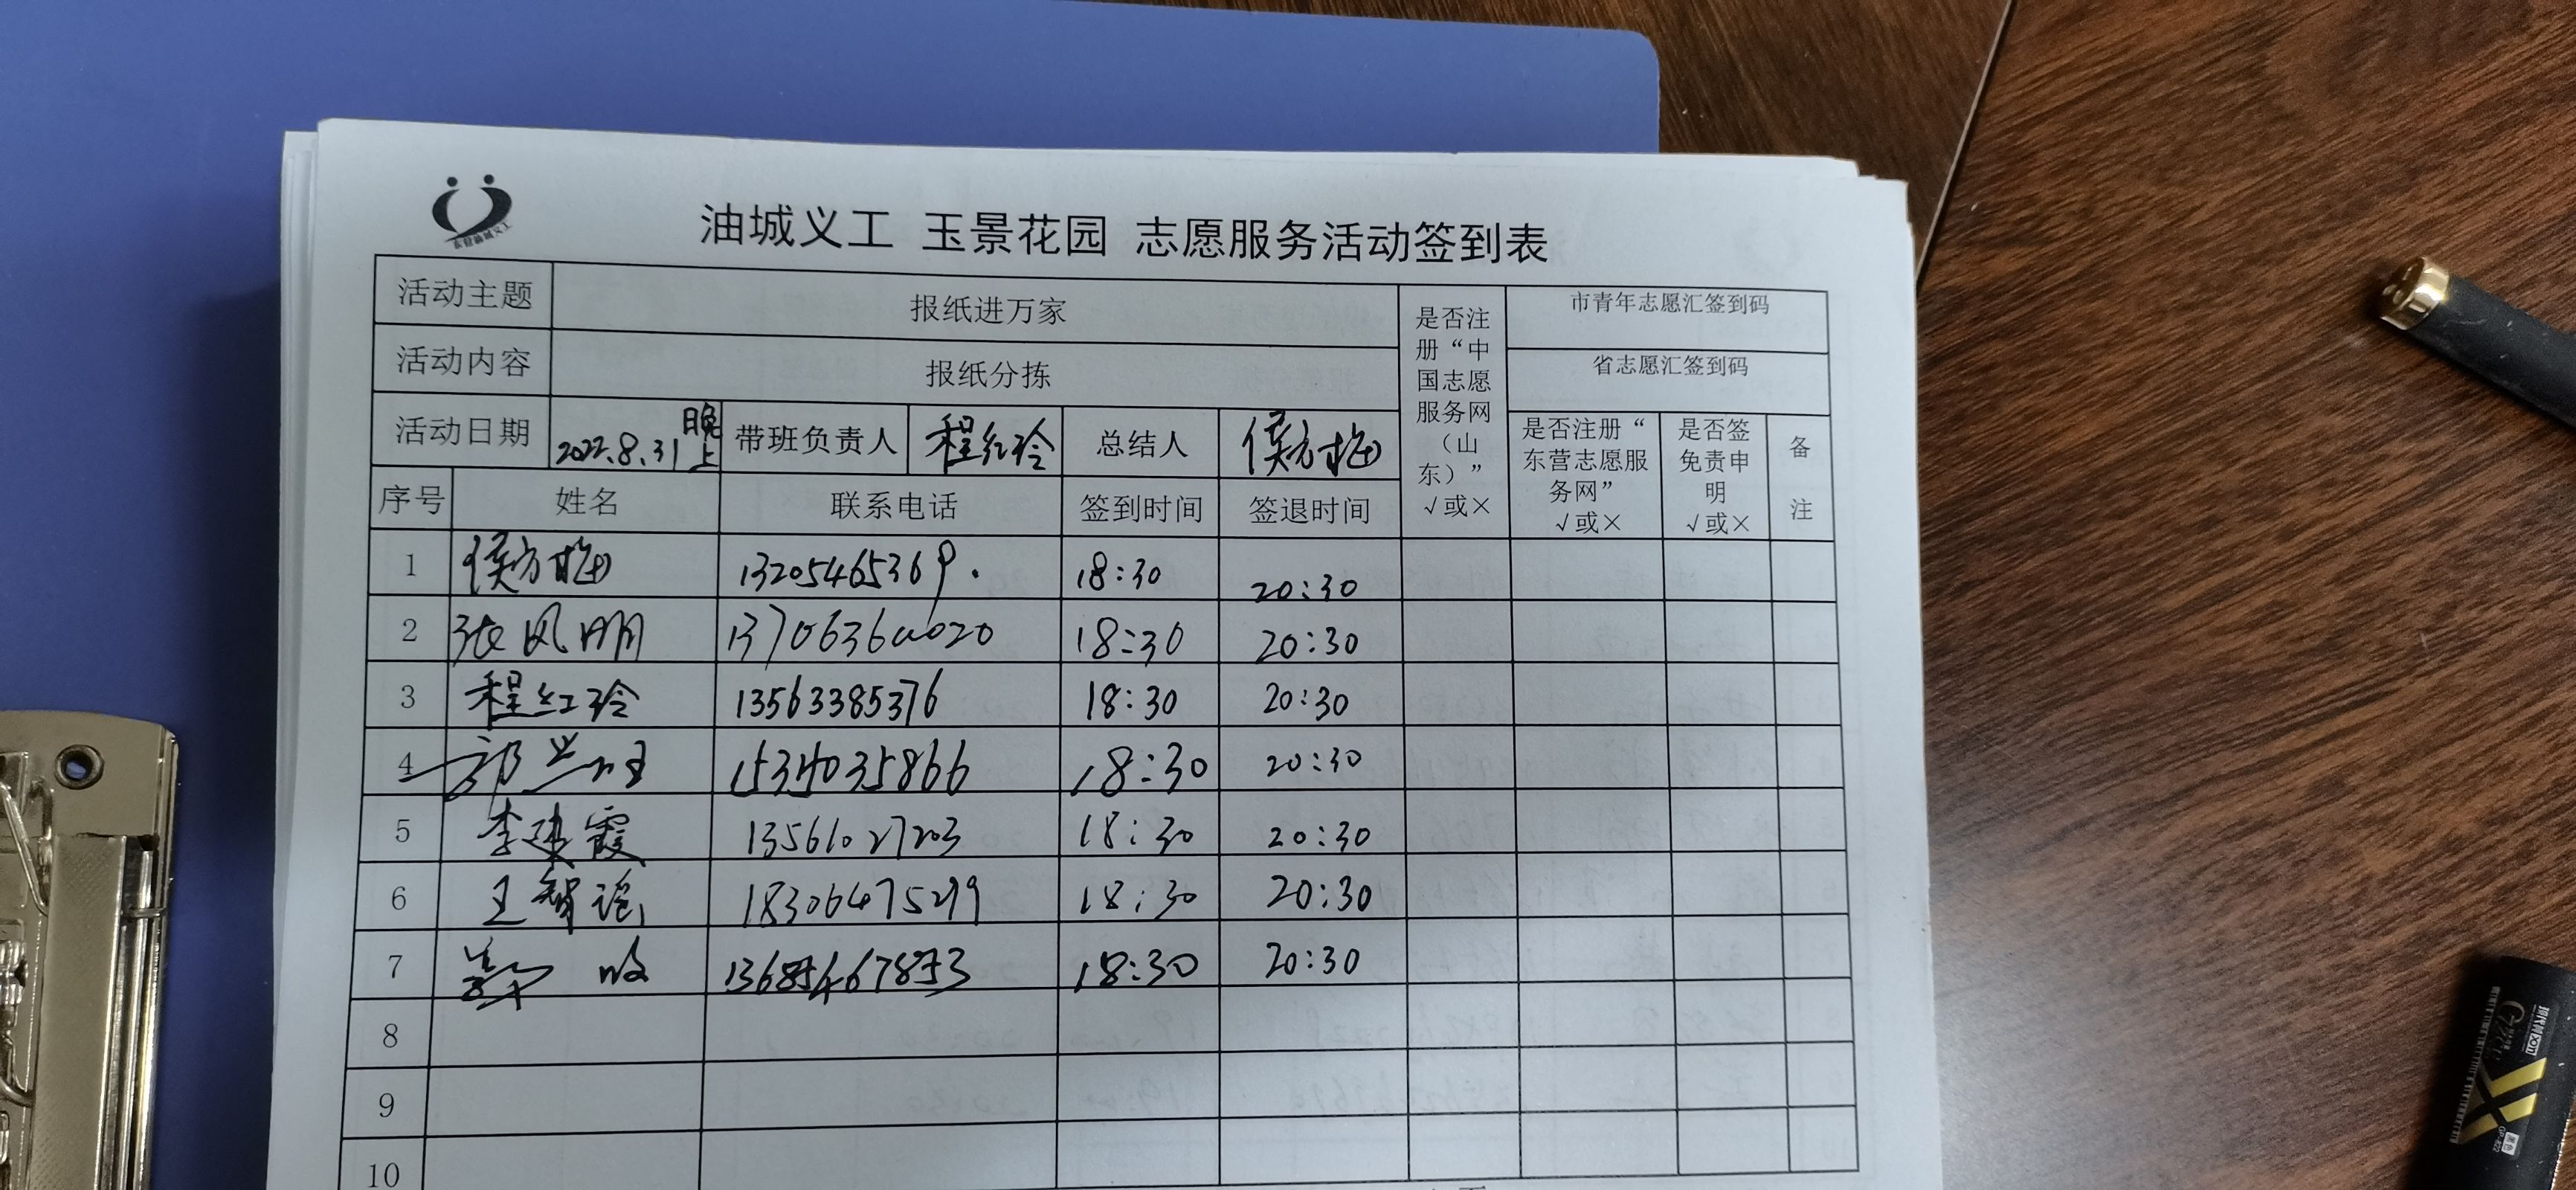 油城义工 玉景花园 志愿服务活动签到表
活动主题 报纸进万家 是否注册“中国志愿服务网（山东）”√或× 市青年志愿汇签到码
活动内容 报纸分拣 省志愿汇签到码
活动日期 2022.8.31日晚上 带班负责人 程红玲 总结人 侯方梅 是否注册“东营志愿服务网”√或× 是否签免责申明√或× 备注
序号 姓名 联系电话 签到时间 签退时间
1 侯方梅 13205465369. 18:30 20:30
2 张风明 13706360020 18:30 20:30
3 程红玲 13563385376 18:30 20:30
4 18:30 20:30
5 李建霞 13561027203 18:30 20:30
6 王智谣 18306475299 18:30 20:30
7 18:30 20:30
8
9
10